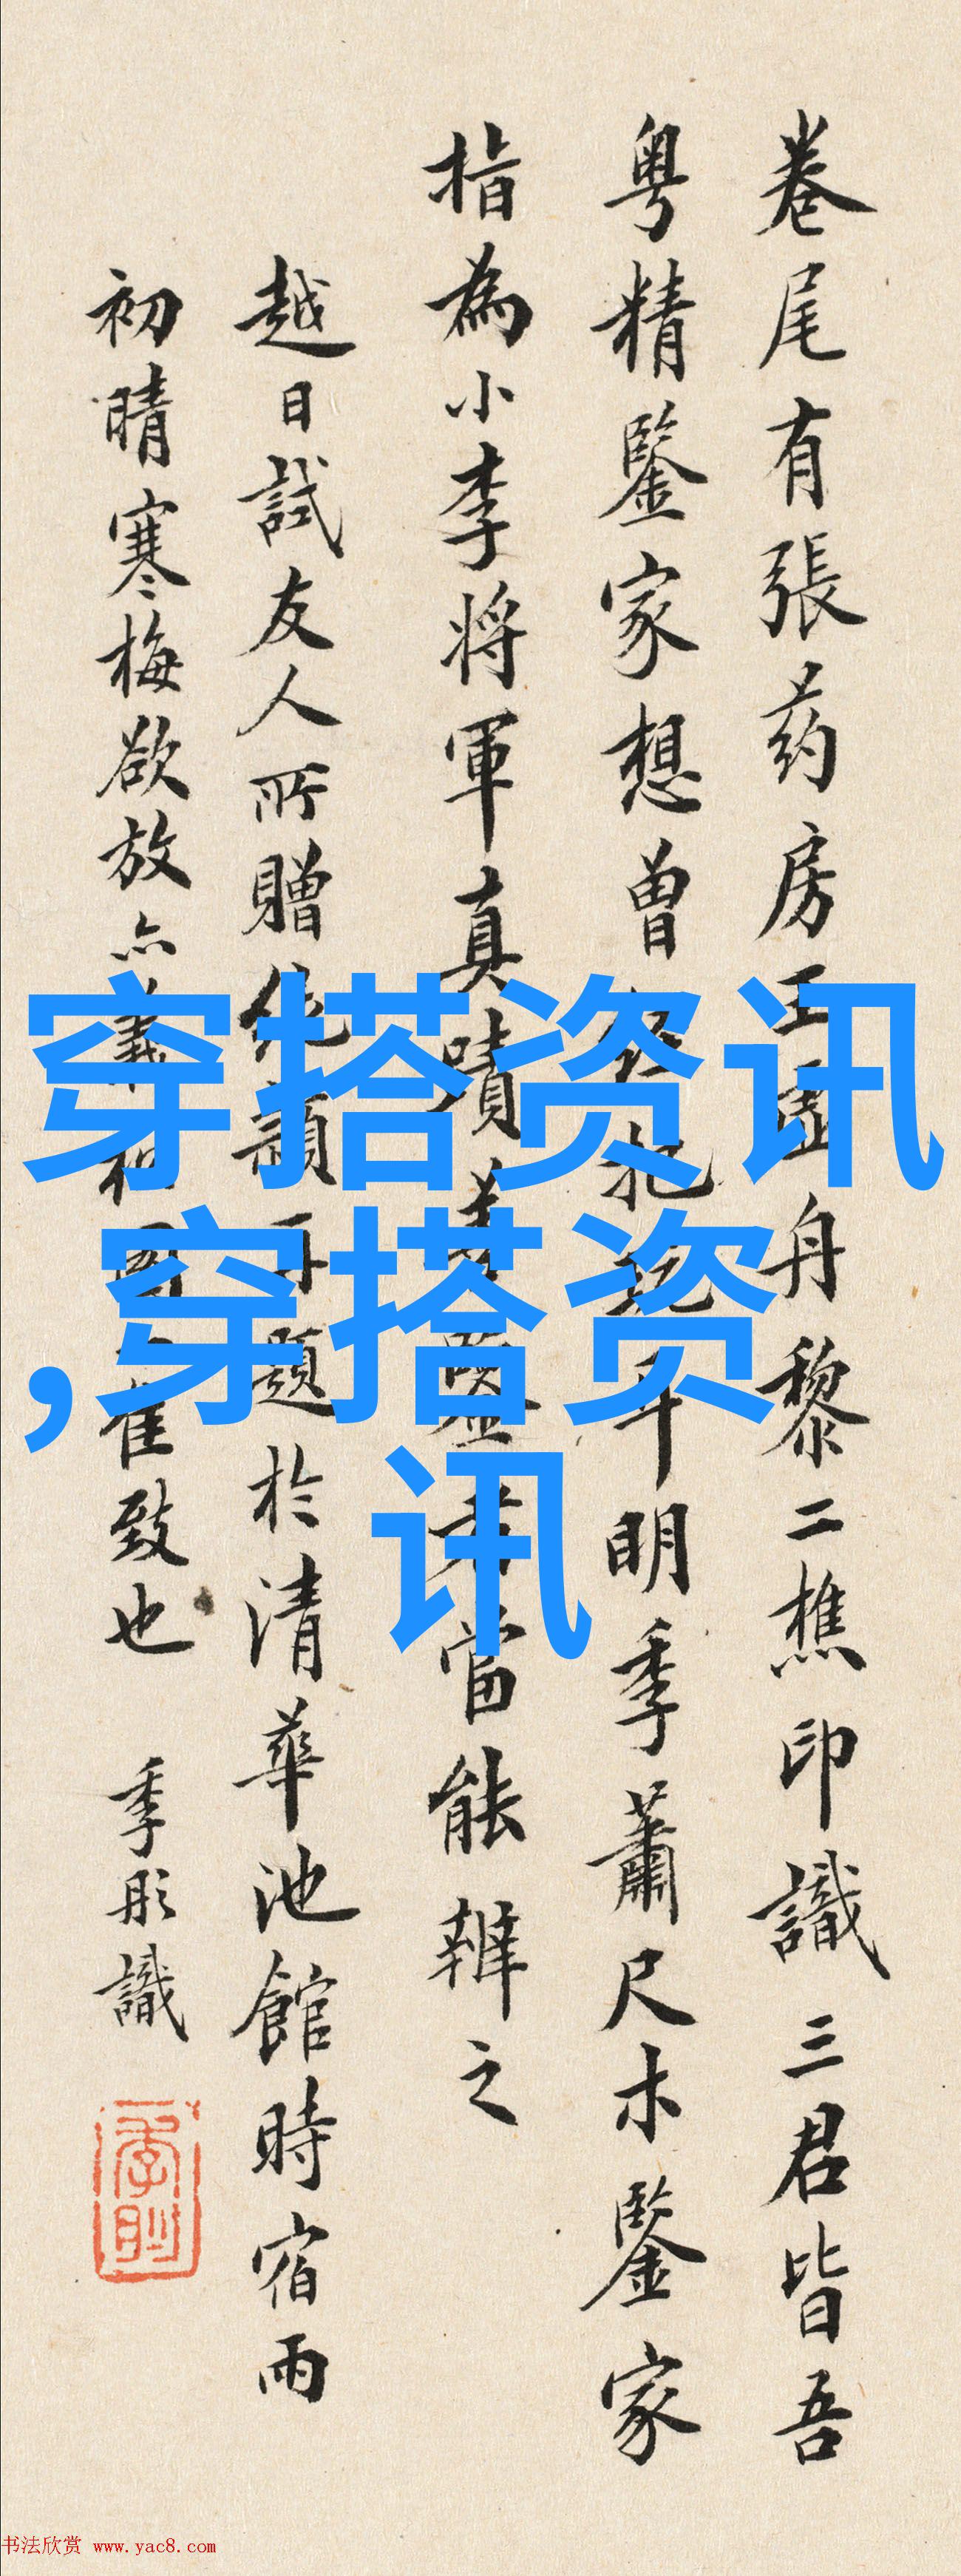 卷尾有張药房王 舟黎二樵印識三君皆吾
粤精鑒家想曾 把 年明季蕭尺木鑒家
指為小李將軍真蹟 鑒者當能辨之
越日試友人所贈 題於清華池館時宿雨
初晴寒梅欲放亦 致也 季彤識
穿搭资讯
,穿搭资
讯
书法欣赏 www.yac8.com